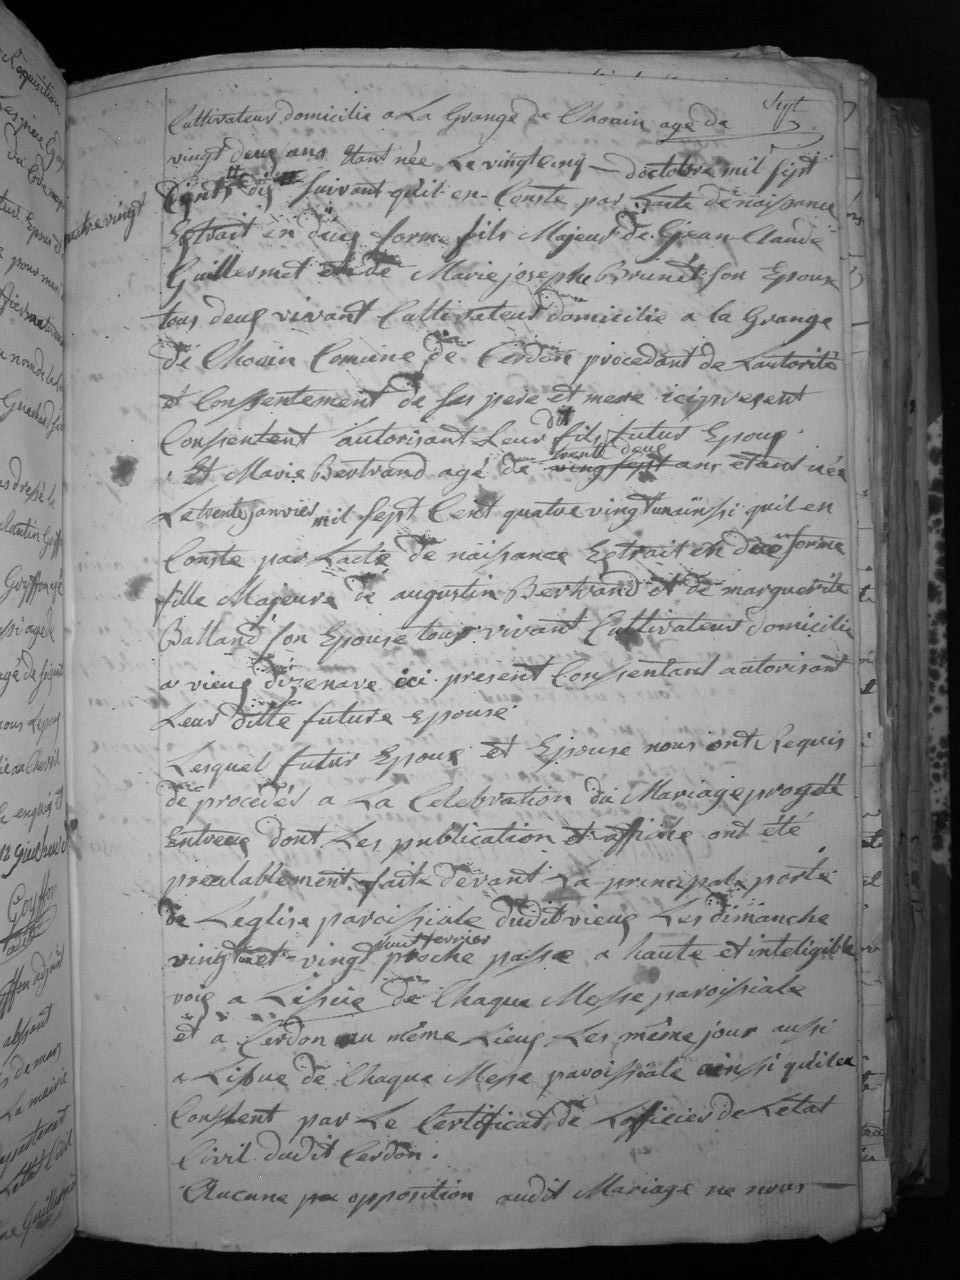 Sept
Cultivateur domicilie a La Grange de Chouin agé de
vingt deux ans Etant née Le vingt Cinq doctobre mil sept
Cents dix suivant quil en Conste par Lacte de naissance
quatre vingt
Extrait en deux forme fils Majeur de Jean Claude
Guillermet et de Marie josephe Brunet son Epoux
tous deux vivant Cultivateur domicilie a la Grange
de Chouin Comune de Cerdon procedant de Lautorité
et Consentement de ses pere et mere ici present
Consentent autorisant Leur dit fils futur Epoux.
Et Marie Bertrand agé de trente deux ans etant née
Le trente janvier mil sept Cent quatre vingt un ainssi quil en
Conste par Lacte de naissance Extrait en due forme
fille Majeure de augustin Bertrand et de marguerite
Balland son Epouse tous vivant Cultivateur domicilie
a vieux dizenave ici present Consentant autorisant
Leur ditte future epouse
Lesquel futur Epoux et Epouse nous ont Requis
de procédés a La Celebration du Mariage progeté
Entreux dont Les publication et affiche ont été
prealablement faite devant La principale porte
de Leglise paroissiale dudit vieux Les dimanche
vingt un et vingt huit fevrier proche passe a haute et inteligible
voix a Lissue de Chaque Messe paroissiale
et a Cerdon au même Lieux Les même jour aussi
a Lissue de Chaque Messe paroissiale ainssi quil en
Constent par Le Certificat de Lofficier de Letat
Civil dudit Cerdon.
Aucune opposition audit Mariage ne nous